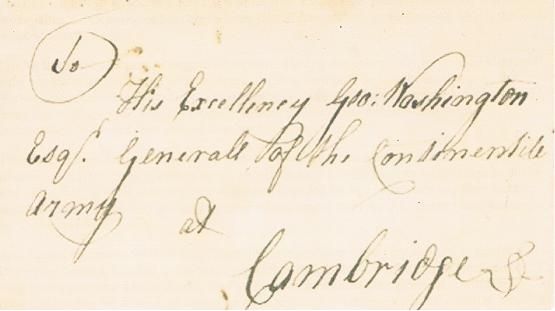 To
His Excellency Geo: Washington
Esqr. Generall of the Continentile
Army
at
Cambridge